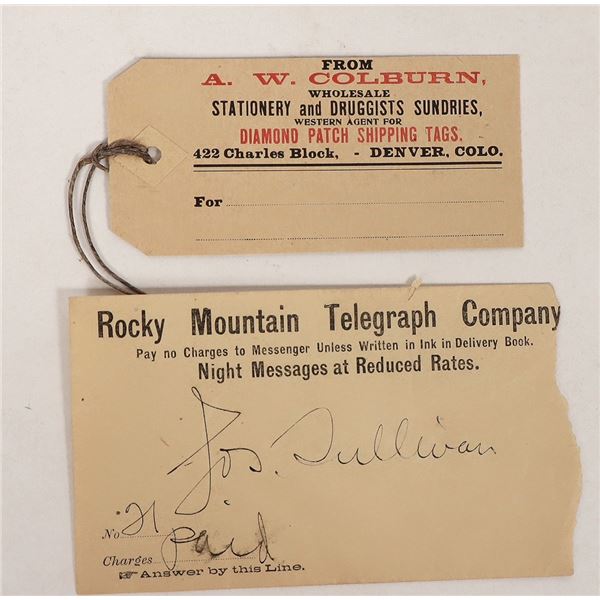 FROM
A. W. COLBURN,
WHOLESALE
STATIONERY and DRUGGISTS SUNDRIES,
WESTERN AGENT FOR
DIAMOND PATCH SHIPPING TAGS.
422 Charles Block, - DENVER, COLO.
For
Rocky Mountain Telegraph Company
Pay no Charges to Messenger Unless Written in Ink in Delivery Book.
Night Messages at Reduced Rates.
Jos. Sullivan
No. 21
Charges Paid
☞ Answer by this Line.